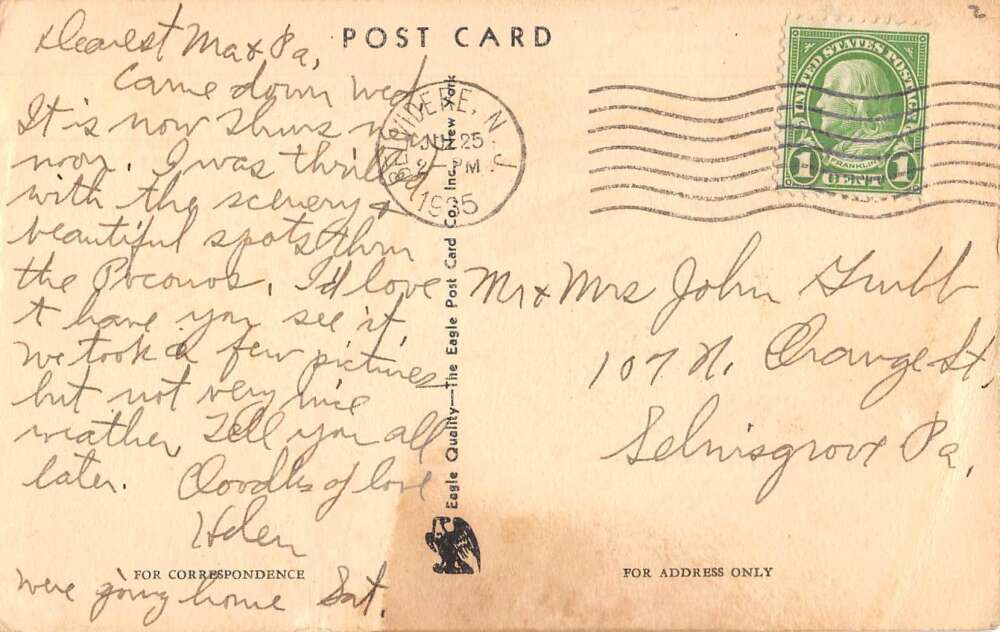 POST CARD
Dearest Ma & Pa,
Came down Wed
It is now Thurs
noon. I was thrilled
with the scenery &
beautiful spots thru
the Poconos. I'd love
t have you see it
We took a few pictures
but not very nice
weather. Tell you all
later. Ooodles of love
Helen
FOR CORRESPONDENCE
We're going home Sat.
Eagle Quality—The Eagle Post Card Co. Inc. New York
BELVIDERE, N. J.
JUL 25
2 - PM
1935
UNITED STATES POSTAGE
FRANKLIN
1 CENT 1
2
Mr & Mrs John Grubb
107 N. Orange St.
Selinsgrove Pa.
FOR ADDRESS ONLY